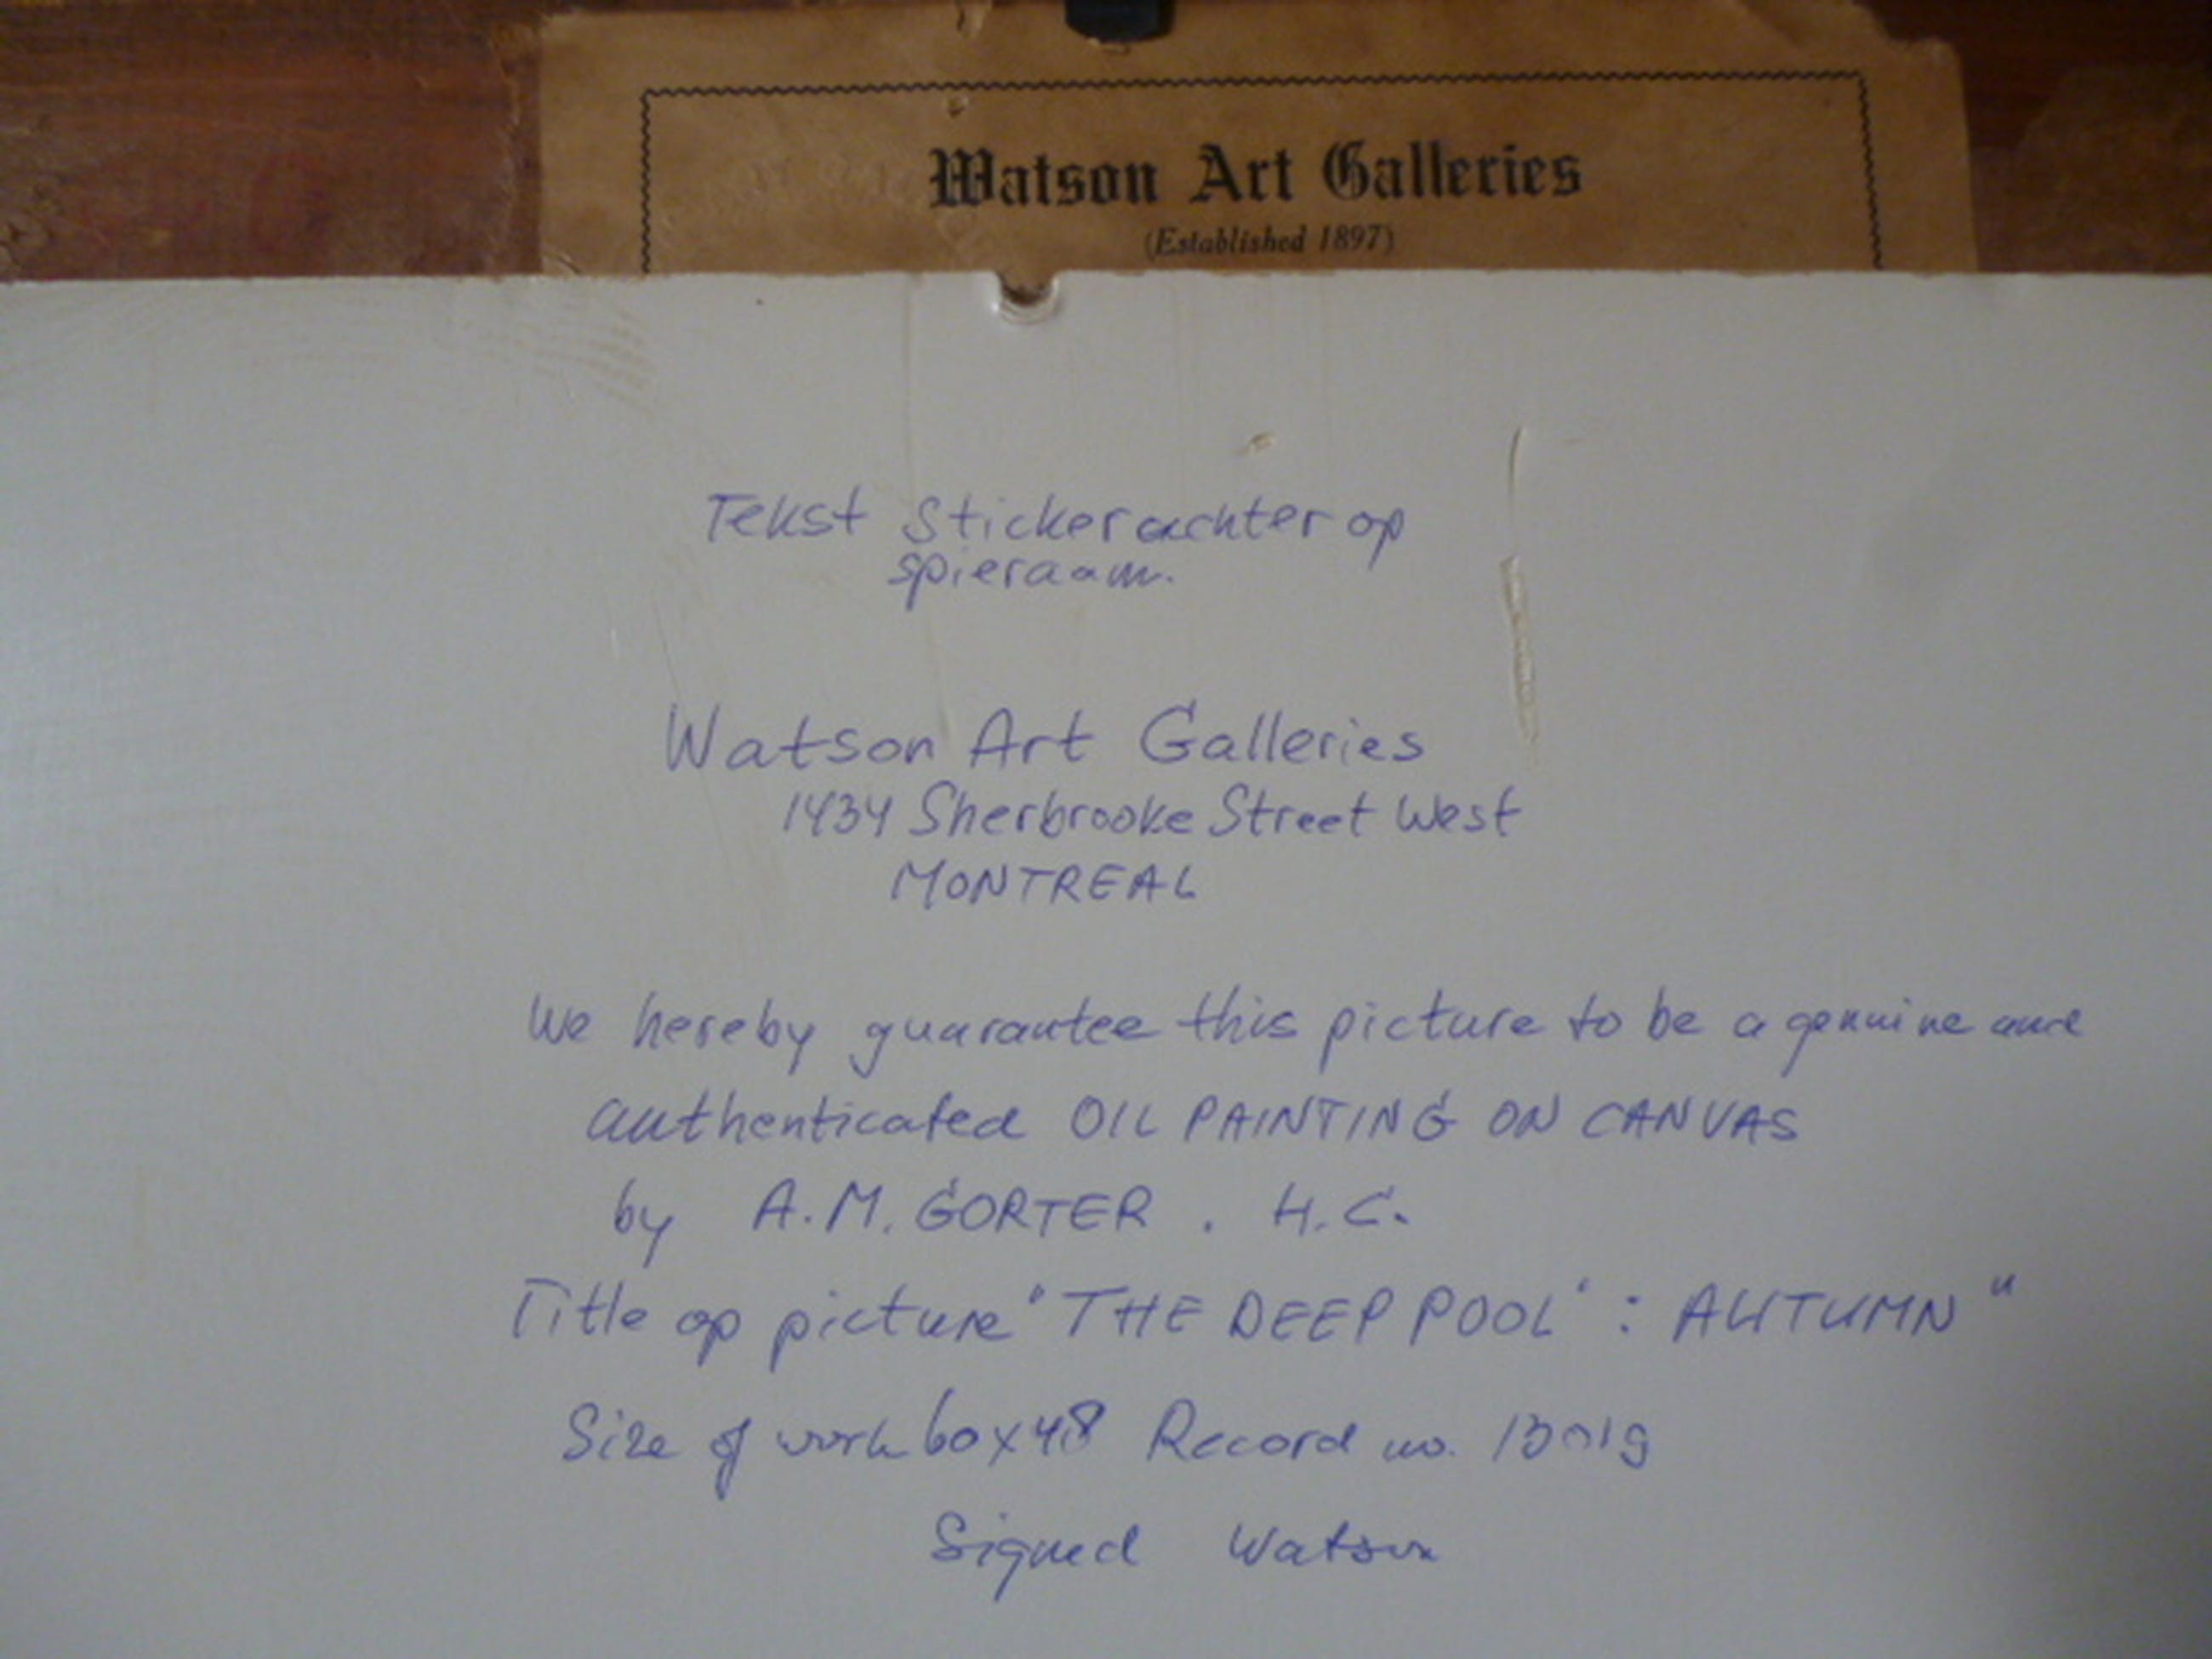 Watson Art Galleries
(Established 1897)
Tekst Sticker achter op
spieraam.
Watson Art Galleries
1434 Sherbrooke Street West
MONTREAL
We hereby guarantee this picture to be a genuine and
authenticated OIL PAINTING ON CANVAS
by A.M. GORTER . H.C.
Title op picture "THE DEEP POOL" : AUTUMN "
Size of work 60x48 Record no. 13019
Signed Watson